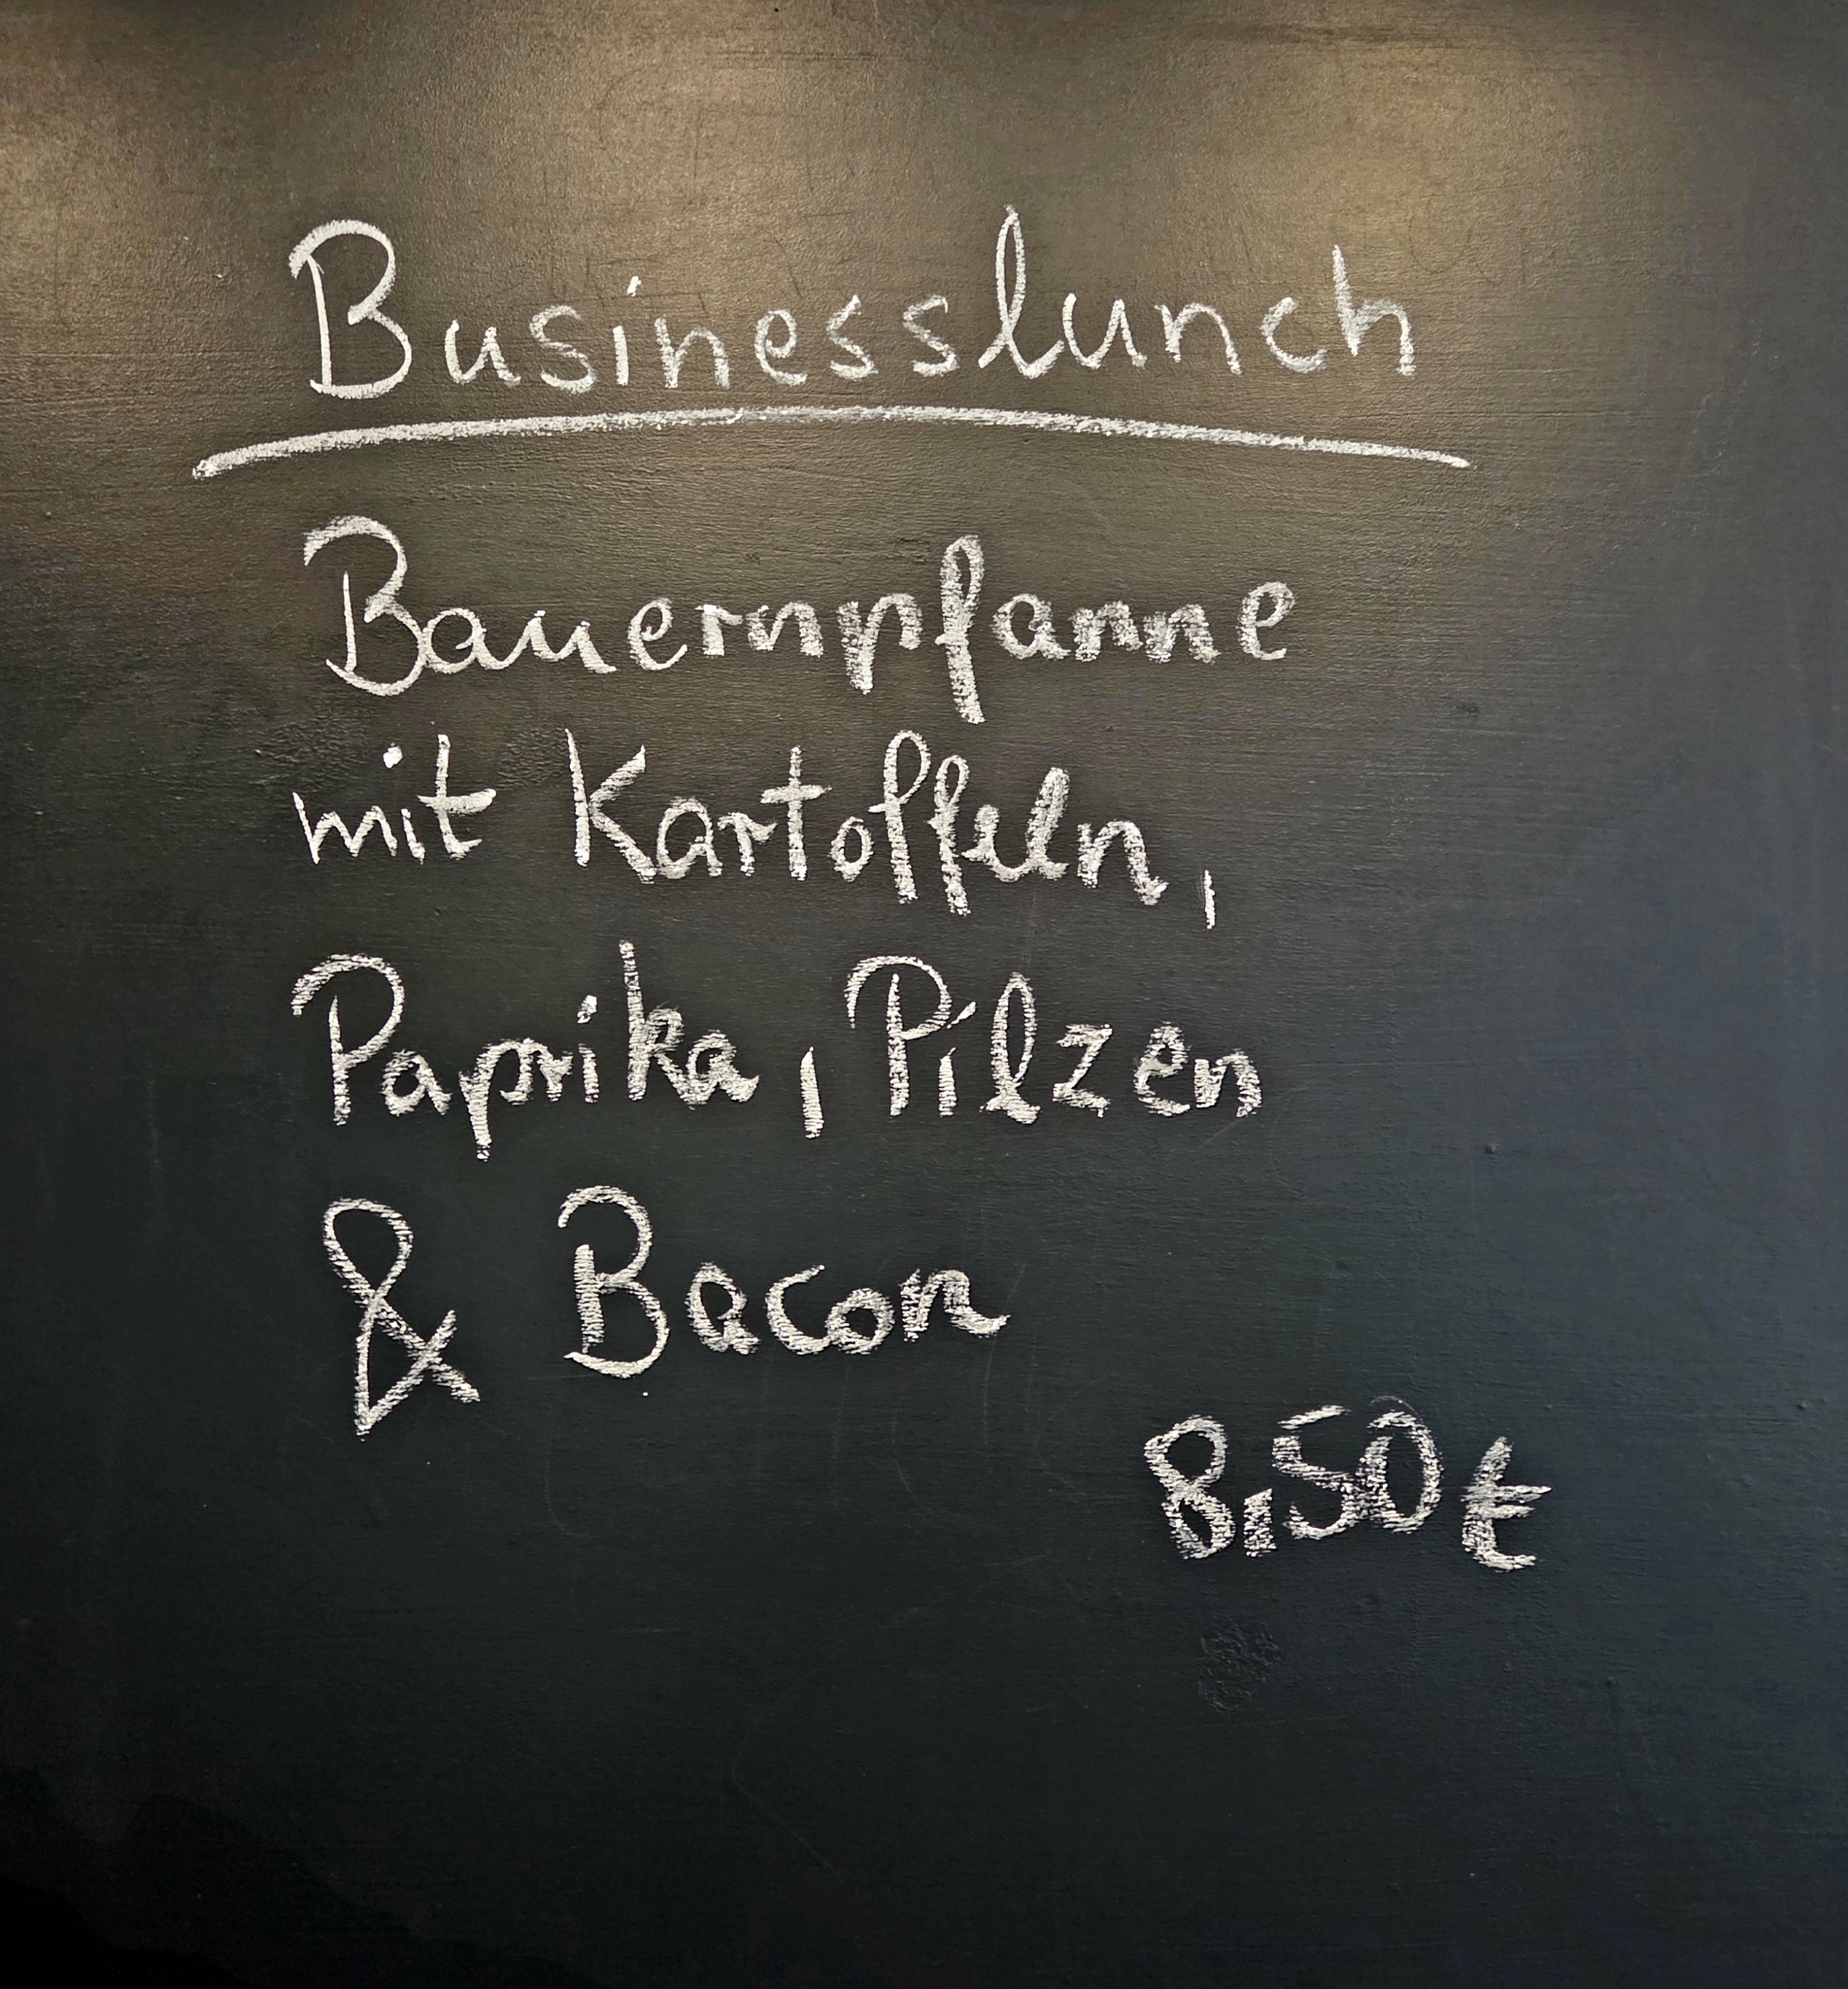 Businesslunch
Bauernpfanne
mit Kartoffeln,
Paprika, Pilzen
& Bacon
8,50€